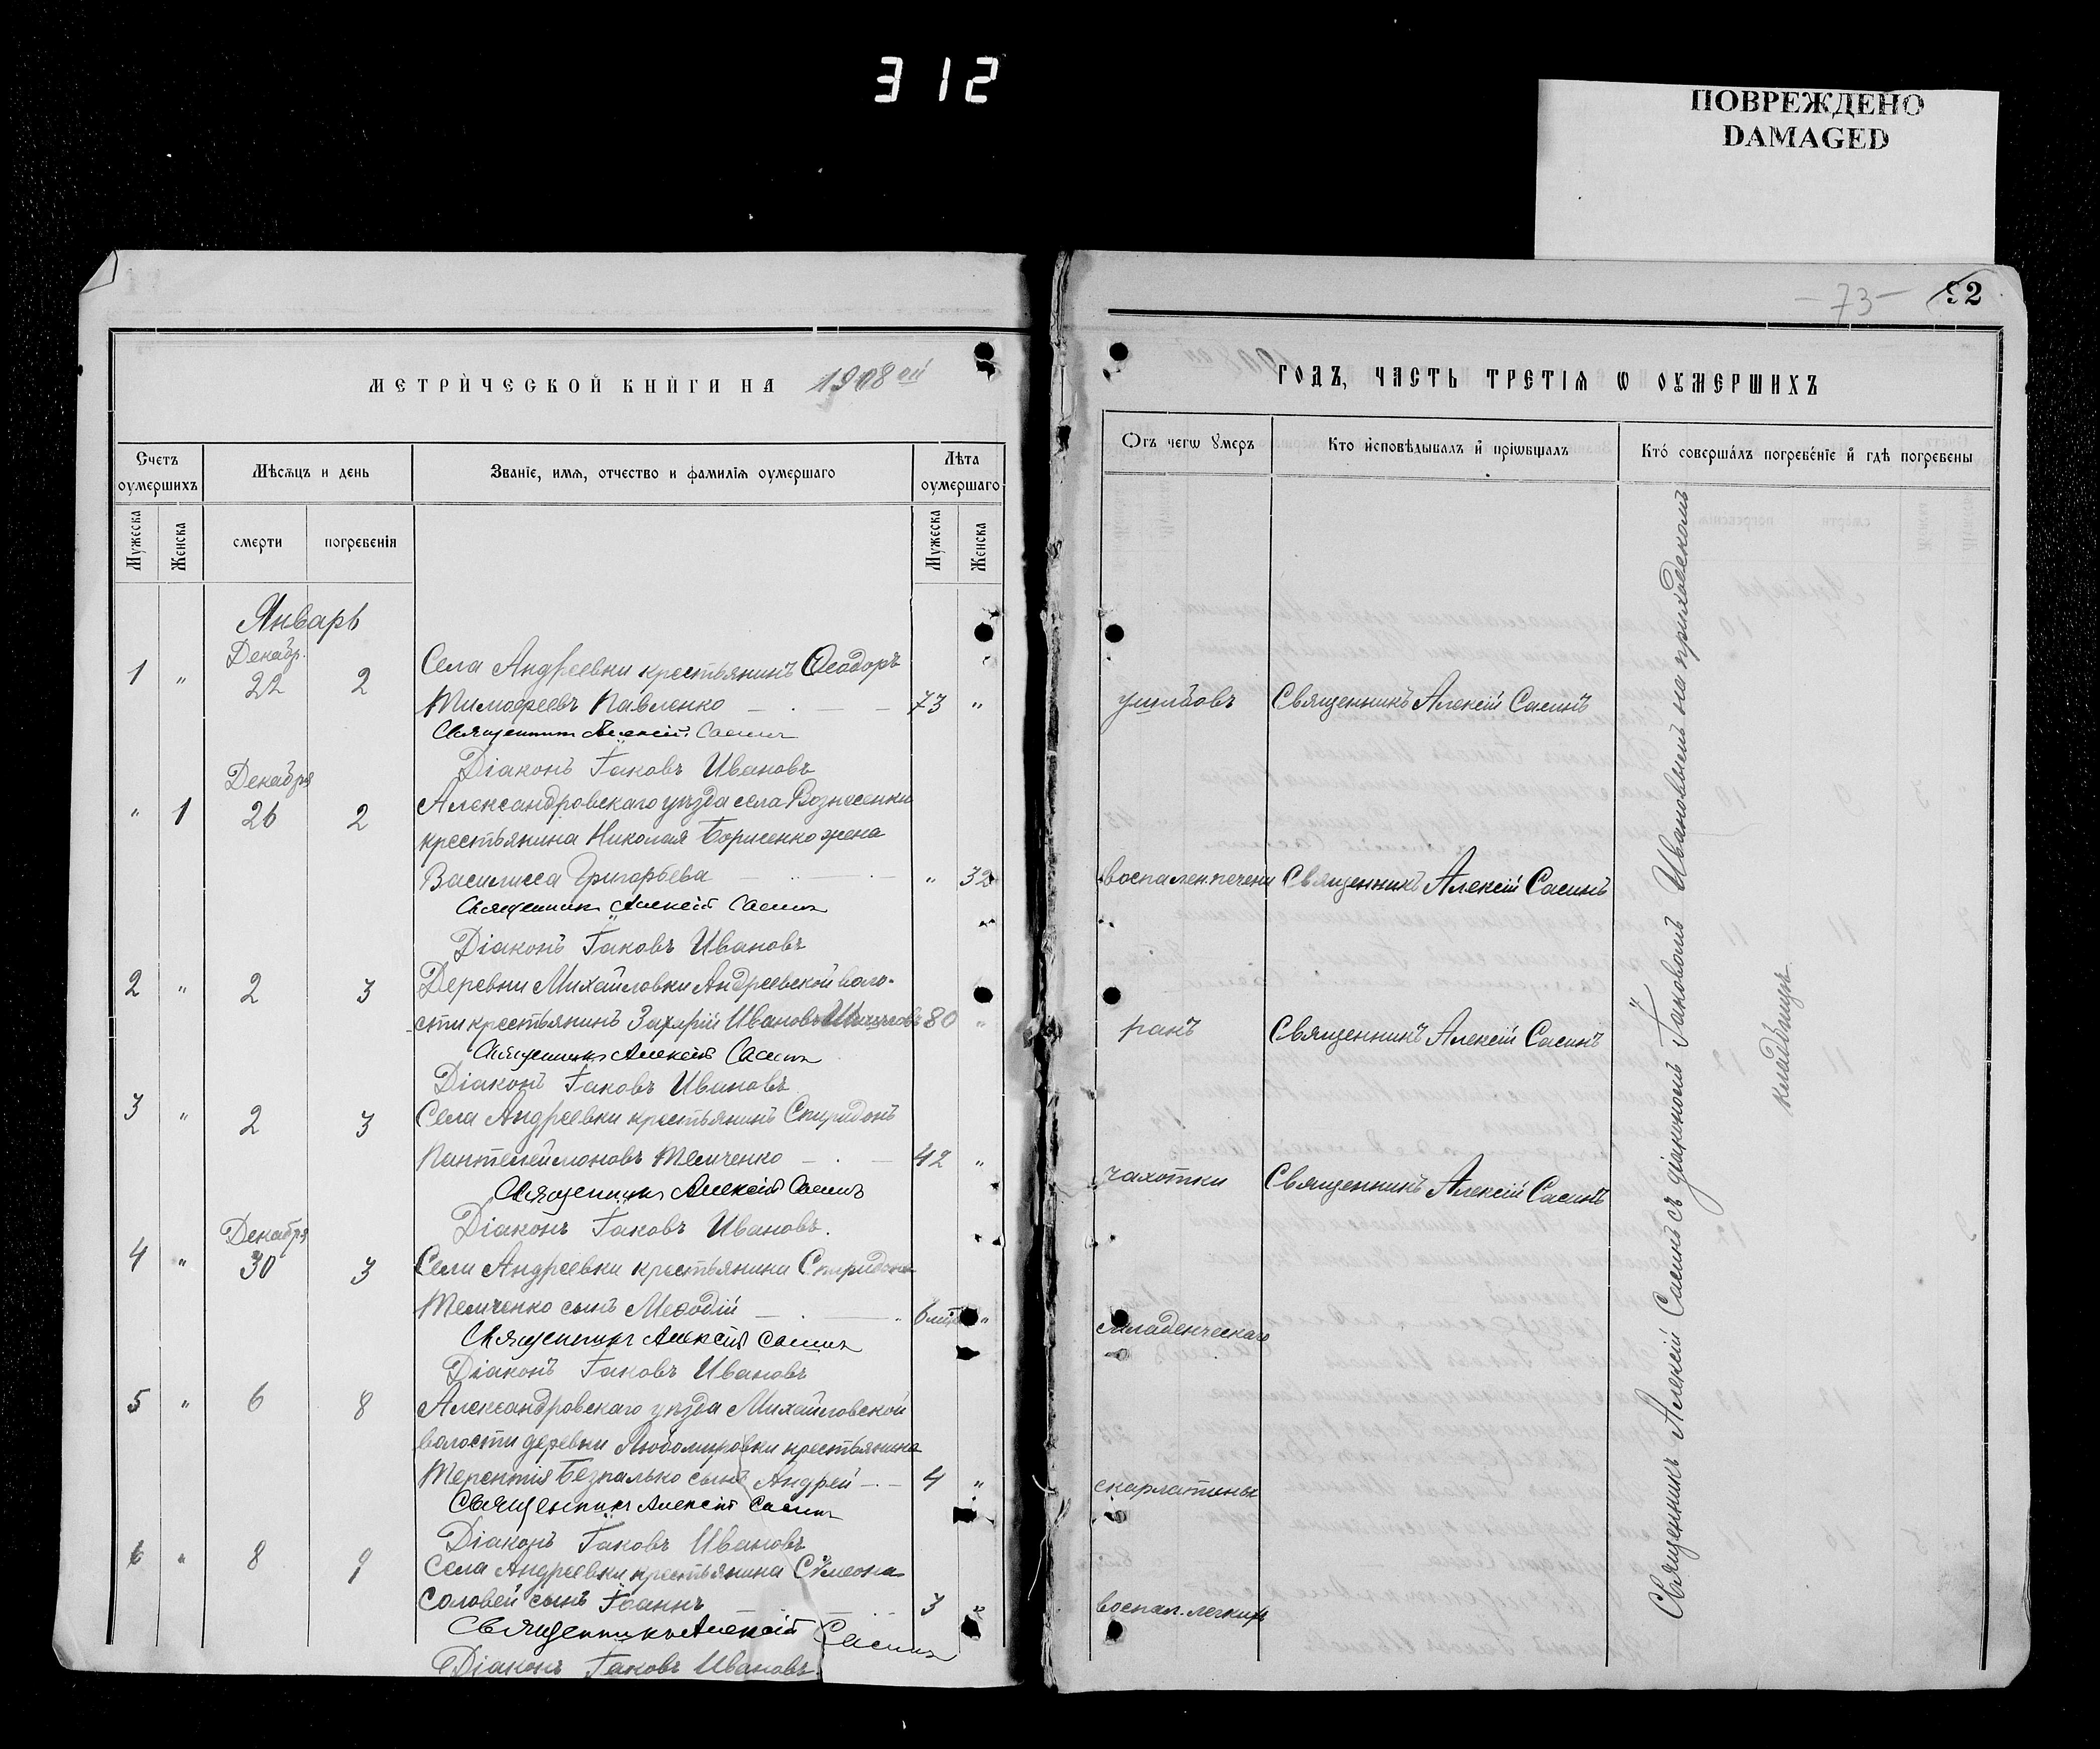 312
ПОВРЕЖДЕНО
DAMAGED
МЕТРИЧЕСКОЙ КНИГИ НА 1908 ой
Счетъ оумершихъ
Мѣсѧцъ и день
Званіе, имѧ, отчество и фамиліѧ оумершаго
Лѣта оумершаго
Мужеска
Женска
смерти
погребенія
Мужеска
Женска
Январь
Декабр.
1 " 22 2 Села Андреевки крестьянинъ Ѳеодоръ
Тимофеевъ Павленко — . — — 73 "
Священникъ Алексій Сасинъ
Діаконъ Іаковъ Ивановъ
Декабря
" 1 26 2 Александровскаго уѣзда села Вознесенки
крестьянина Николая Борисенко жена
Василисса Григорьева — . — . — " 32
Священникъ Алексій Сасинъ
Діаконъ Іаковъ Ивановъ
2 " 2 3 Деревни Михайловки Андреевской воло-
сти крестьянинъ Захарій Ивановъ 80 "
Священникъ Алексій Сасинъ
Діаконъ Іаковъ Ивановъ
3 " 2 3 Села Андреевки крестьянинъ Спиридонъ
Пантелеймоновъ Темченко — . — 42 "
Священникъ Алексій Сасинъ
Діаконъ Іаковъ Ивановъ.
Декабря
4 " 30 3 Села Андреевки крестьянина Спиридона
Темченко сынъ Меѳодій — . — 6 "
Священникъ Алексій Сасинъ
Діаконъ Іаковъ Ивановъ
5 " 6 8 Александровскаго уѣзда Михайловской
волости деревни Любомировки крестьянина
Терентія Безпалько сынъ Андрей — . — 4 "
Священникъ Алексій Сасинъ
Діаконъ Іаковъ Ивановъ
6 " 8 9 Села Андреевки крестьянина Сѵмеона
Соловей сынъ Іоаннъ 3 "
Священникъ Алексій Сасинъ
Діаконъ Іаковъ Ивановъ
— 73 — 92
ГОДЪ, ЧАСТЬ ТРЕТІѦ Ѡ ОУМЕРШИХЪ
Отъ чегѡ ᲂумеръ
Кто исповѣдывалъ и пріѡбщалъ
Кто совершалъ погребеніе и гдѣ погребены
ушибовъ Священникъ Алексій Сасинъ
воспален. печени Священникъ Алексій Сасинъ
ранъ Священникъ Алексій Сасинъ
чахотки Священникъ Алексій Сасинъ
младенческаго
скарлатины
воспал. легкихъ
Священникъ Алексій Сасинъ съ діакономъ Іаковомъ Ивановымъ на приходскомъ
кладбищѣ